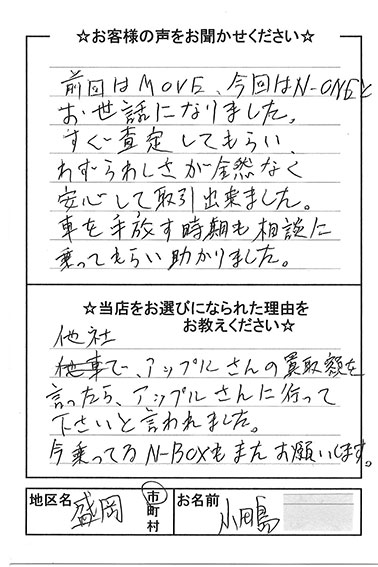 ☆お客様の声をお聞かせください☆
前回はMOVE、今回はN-ONEと
お世話になりました。
すぐ査定してもらい、
わずらわしさが全然なく
安心して取引出来ました。
車を手放す時期も相談に
乗ってもらい助かりました。
☆当店をお選びになられた理由を
お教えください☆
他社
他車で、アップルさんの買取額を
言ったら、アップルさんに行って
下さいと言われました。
今乗ってるN-BOXもまたお願いします。
地区名 盛岡 市町村 お名前 小田島